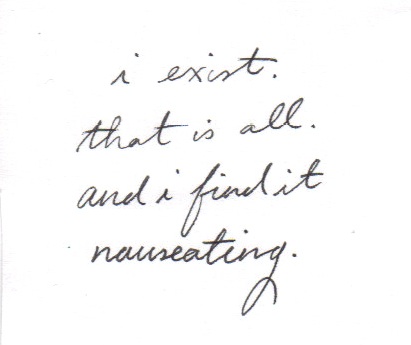 i exist.
that is all.
and i find it
nauseating.